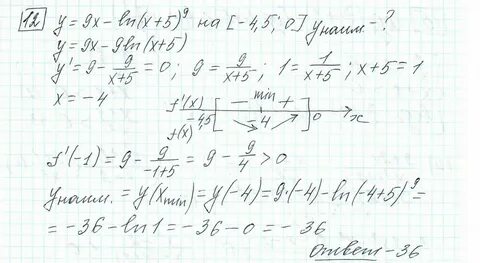 12 y = 9x − ln(x+5)⁹ на [−4,5; 0] yнаим. − ?
y = 9x − 9ln(x+5)
y' = 9 − 9/(x+5) = 0; 9 = 9/(x+5); 1 = 1/(x+5); x+5 = 1
x = −4
f'(x) − min + 
−4,5 −4 0 x
f(x)
f'(−1) = 9 − 9/(−1+5) = 9 − 9/4 > 0
yнаим. = y(xmin) = y(−4) = 9·(−4) − ln(−4+5)⁹ =
= −36 − ln1 = −36 − 0 = −36
Ответ −36